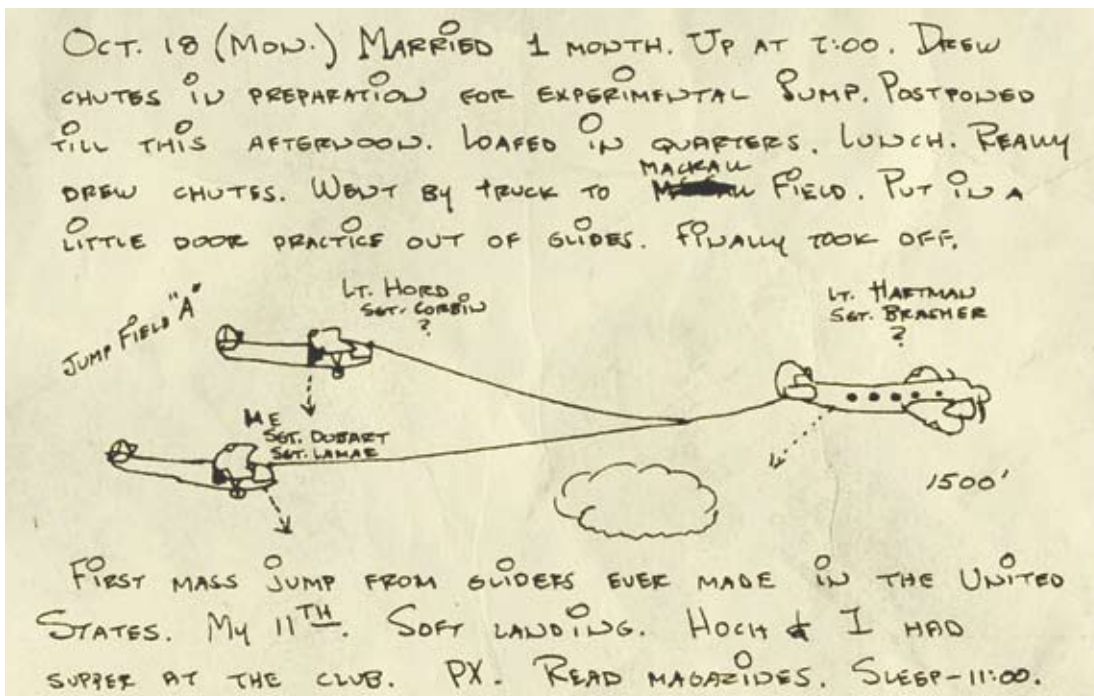 OCT. 18 (MON.) MARRIED 1 MONTH. UP AT 7:00. DREW
CHUTES IN PREPARATION FOR EXPERIMENTAL JUMP. POSTPONED
TILL THIS AFTERNOON. LOAFED IN QUARTERS. LUNCH. REALLY
MACKALL
DREW CHUTES. WENT BY TRUCK TO FIELD. PUT IN A
LITTLE DOOR PRACTICE OUT OF GLIDES. FINALLY TOOK OFF.
JUMP FIELD "A"
LT. HORD
SGT. CORBIN
?
LT. HARTMAN
SGT. BRASHER
?
ME
SGT. DUBART
SGT. LAMAR
1500'
FIRST MASS JUMP FROM GLIDERS EVER MADE IN THE UNITED
STATES. MY 11TH. SOFT LANDING. HOCH & I HAD
SUPPER AT THE CLUB. PX. READ MAGAZINES. SLEEP-11:00.